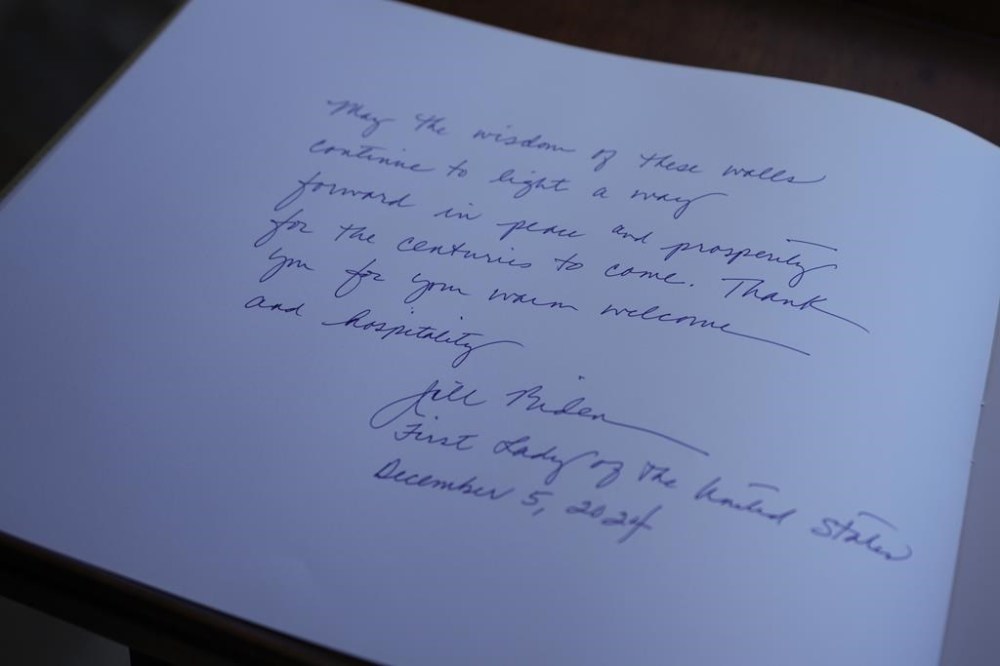 May the wisdom of these walls
continue to light a way
forward in peace and prosperity
for the centuries to come. Thank
you for your warm welcome
and hospitality
Jill Biden
First Lady of the United States
December 5, 2024